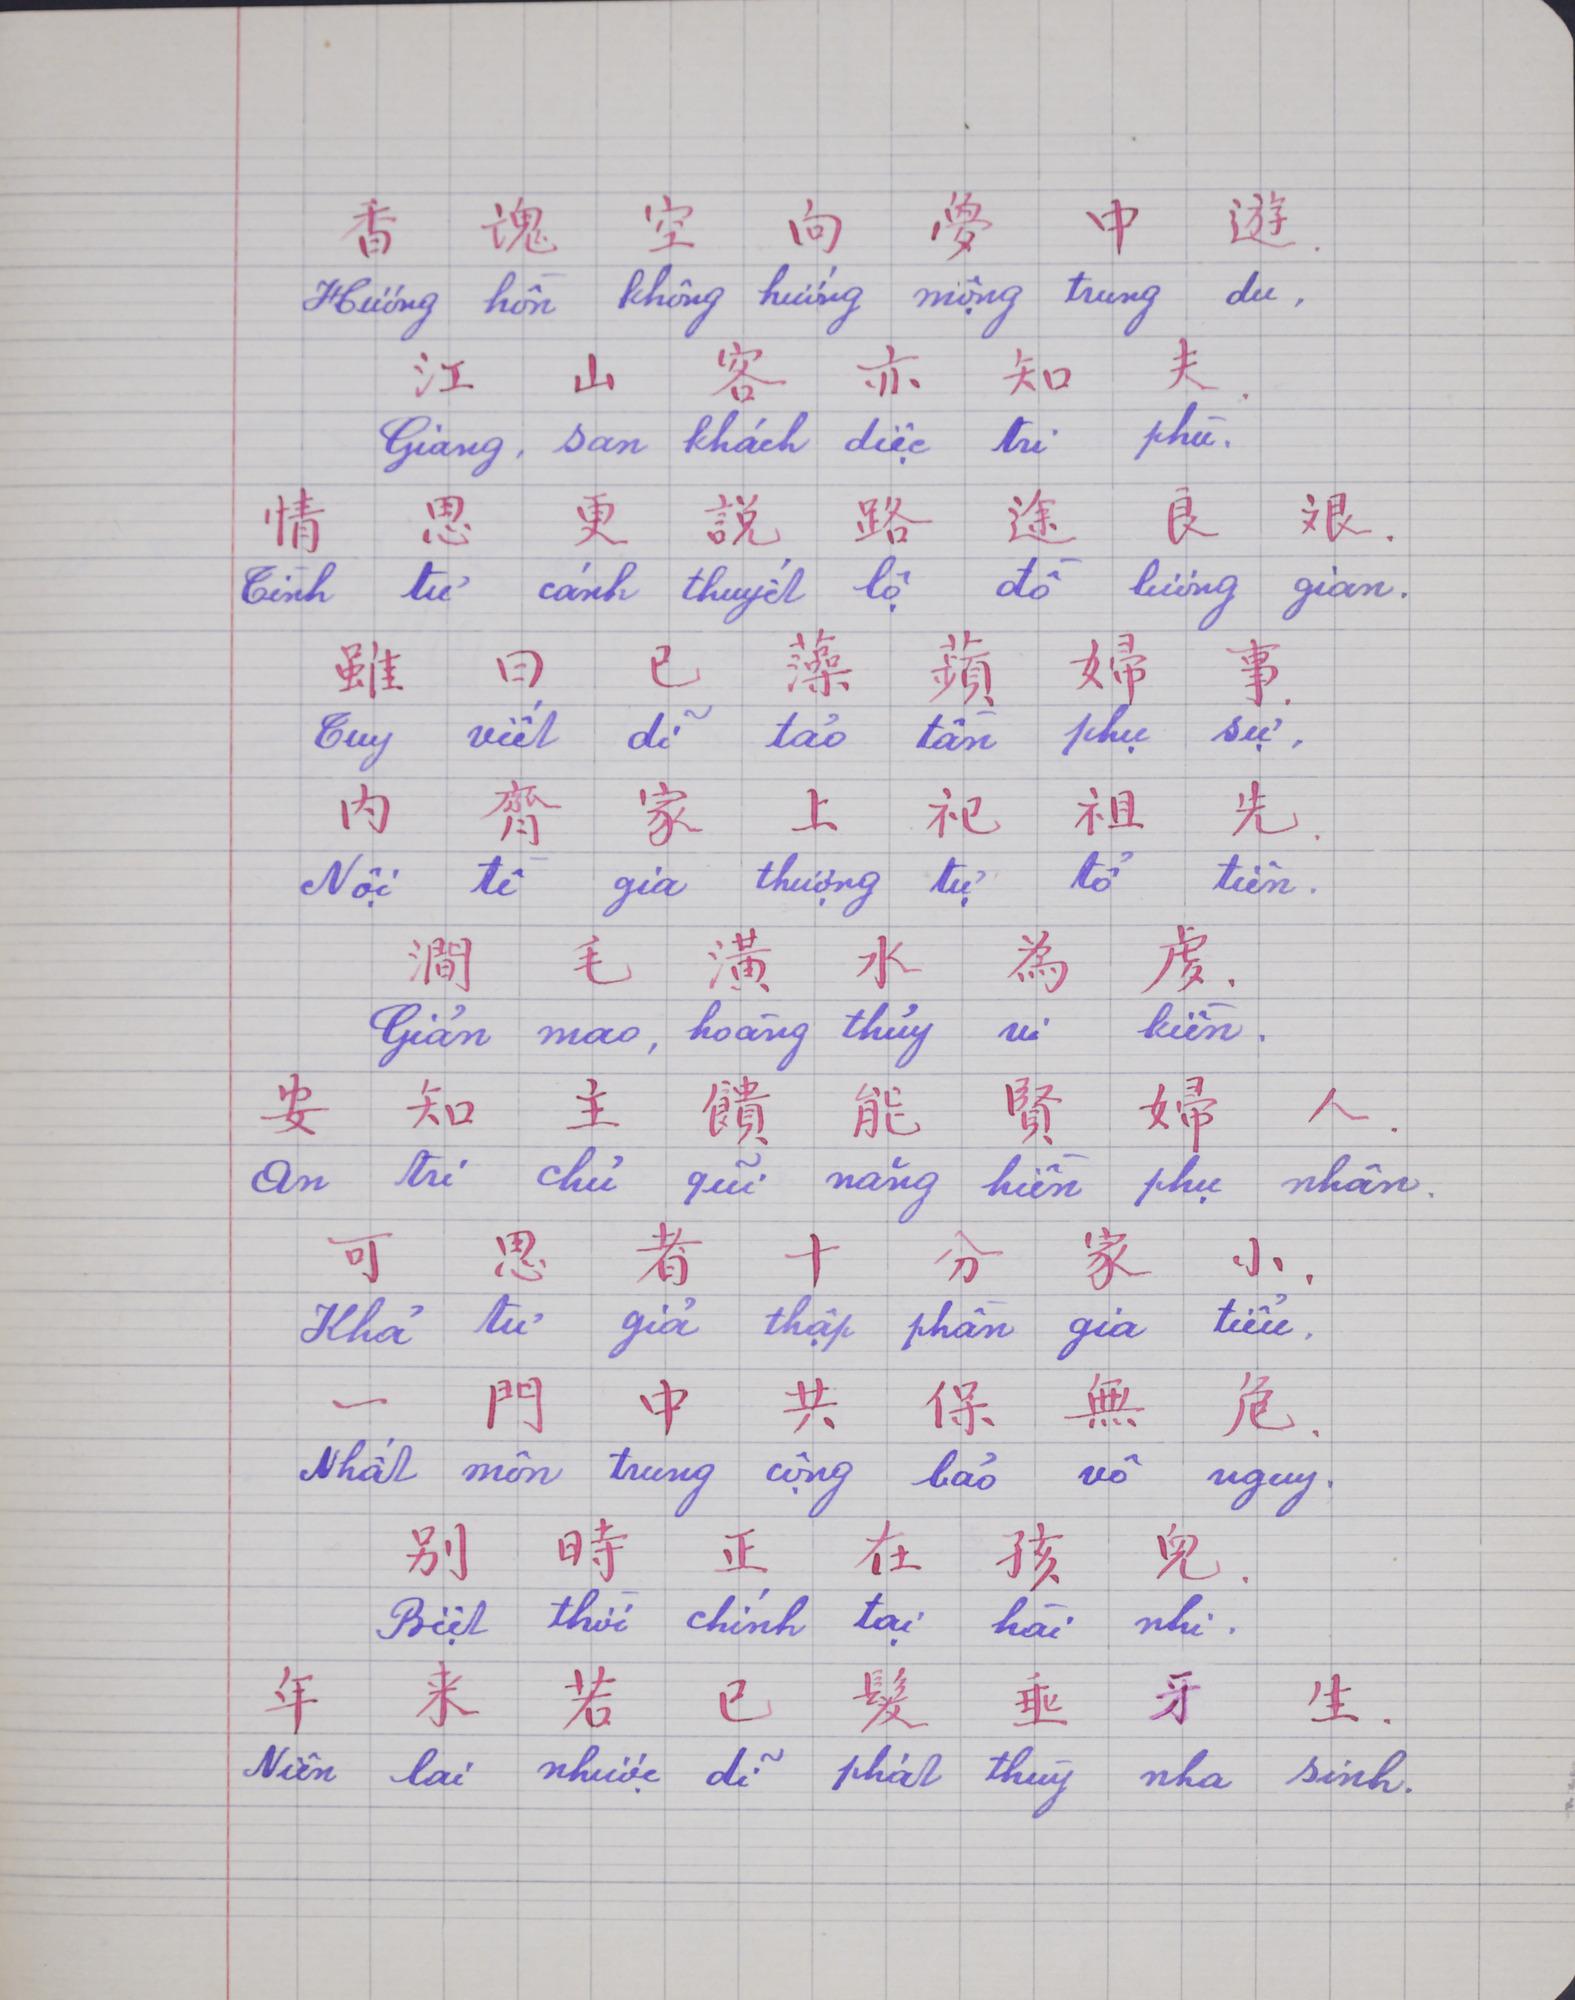 香 魂 空 向 夢 中 遊.
Hương hồn không hướng mộng trung du,
江 山 客 亦 知 夫.
Giang, san khách diệc tri phù.
情 思 更 説 路 途 良 艱.
Tình tư cánh thuyết lộ đồ lương gian.
雖 曰 已 藻 蘋 婦 事.
Tuy viết dĩ tảo tần phụ sự,
内 齊 家 上 祀 祖 先.
Nội tề gia thượng tự tổ tiên.
澗 毛 潢 水 為 虔.
Giản mao, hoàng thủy vi kiền.
安 知 主 饋 能 賢 婦 人.
An tri chủ quĩ năng hiền phụ nhân.
可 思 者 十 分 家 小.
Khả tư giả thập phần gia tiểu,
一 門 中 共 保 無 危.
Nhất môn trung cộng bảo vô nguy.
别 時 正 在 孩 兒.
Biệt thời chính tại hài nhi.
年 来 若 已 髮 垂 牙 生.
Niên lai nhược dĩ phát thùy nha sinh.